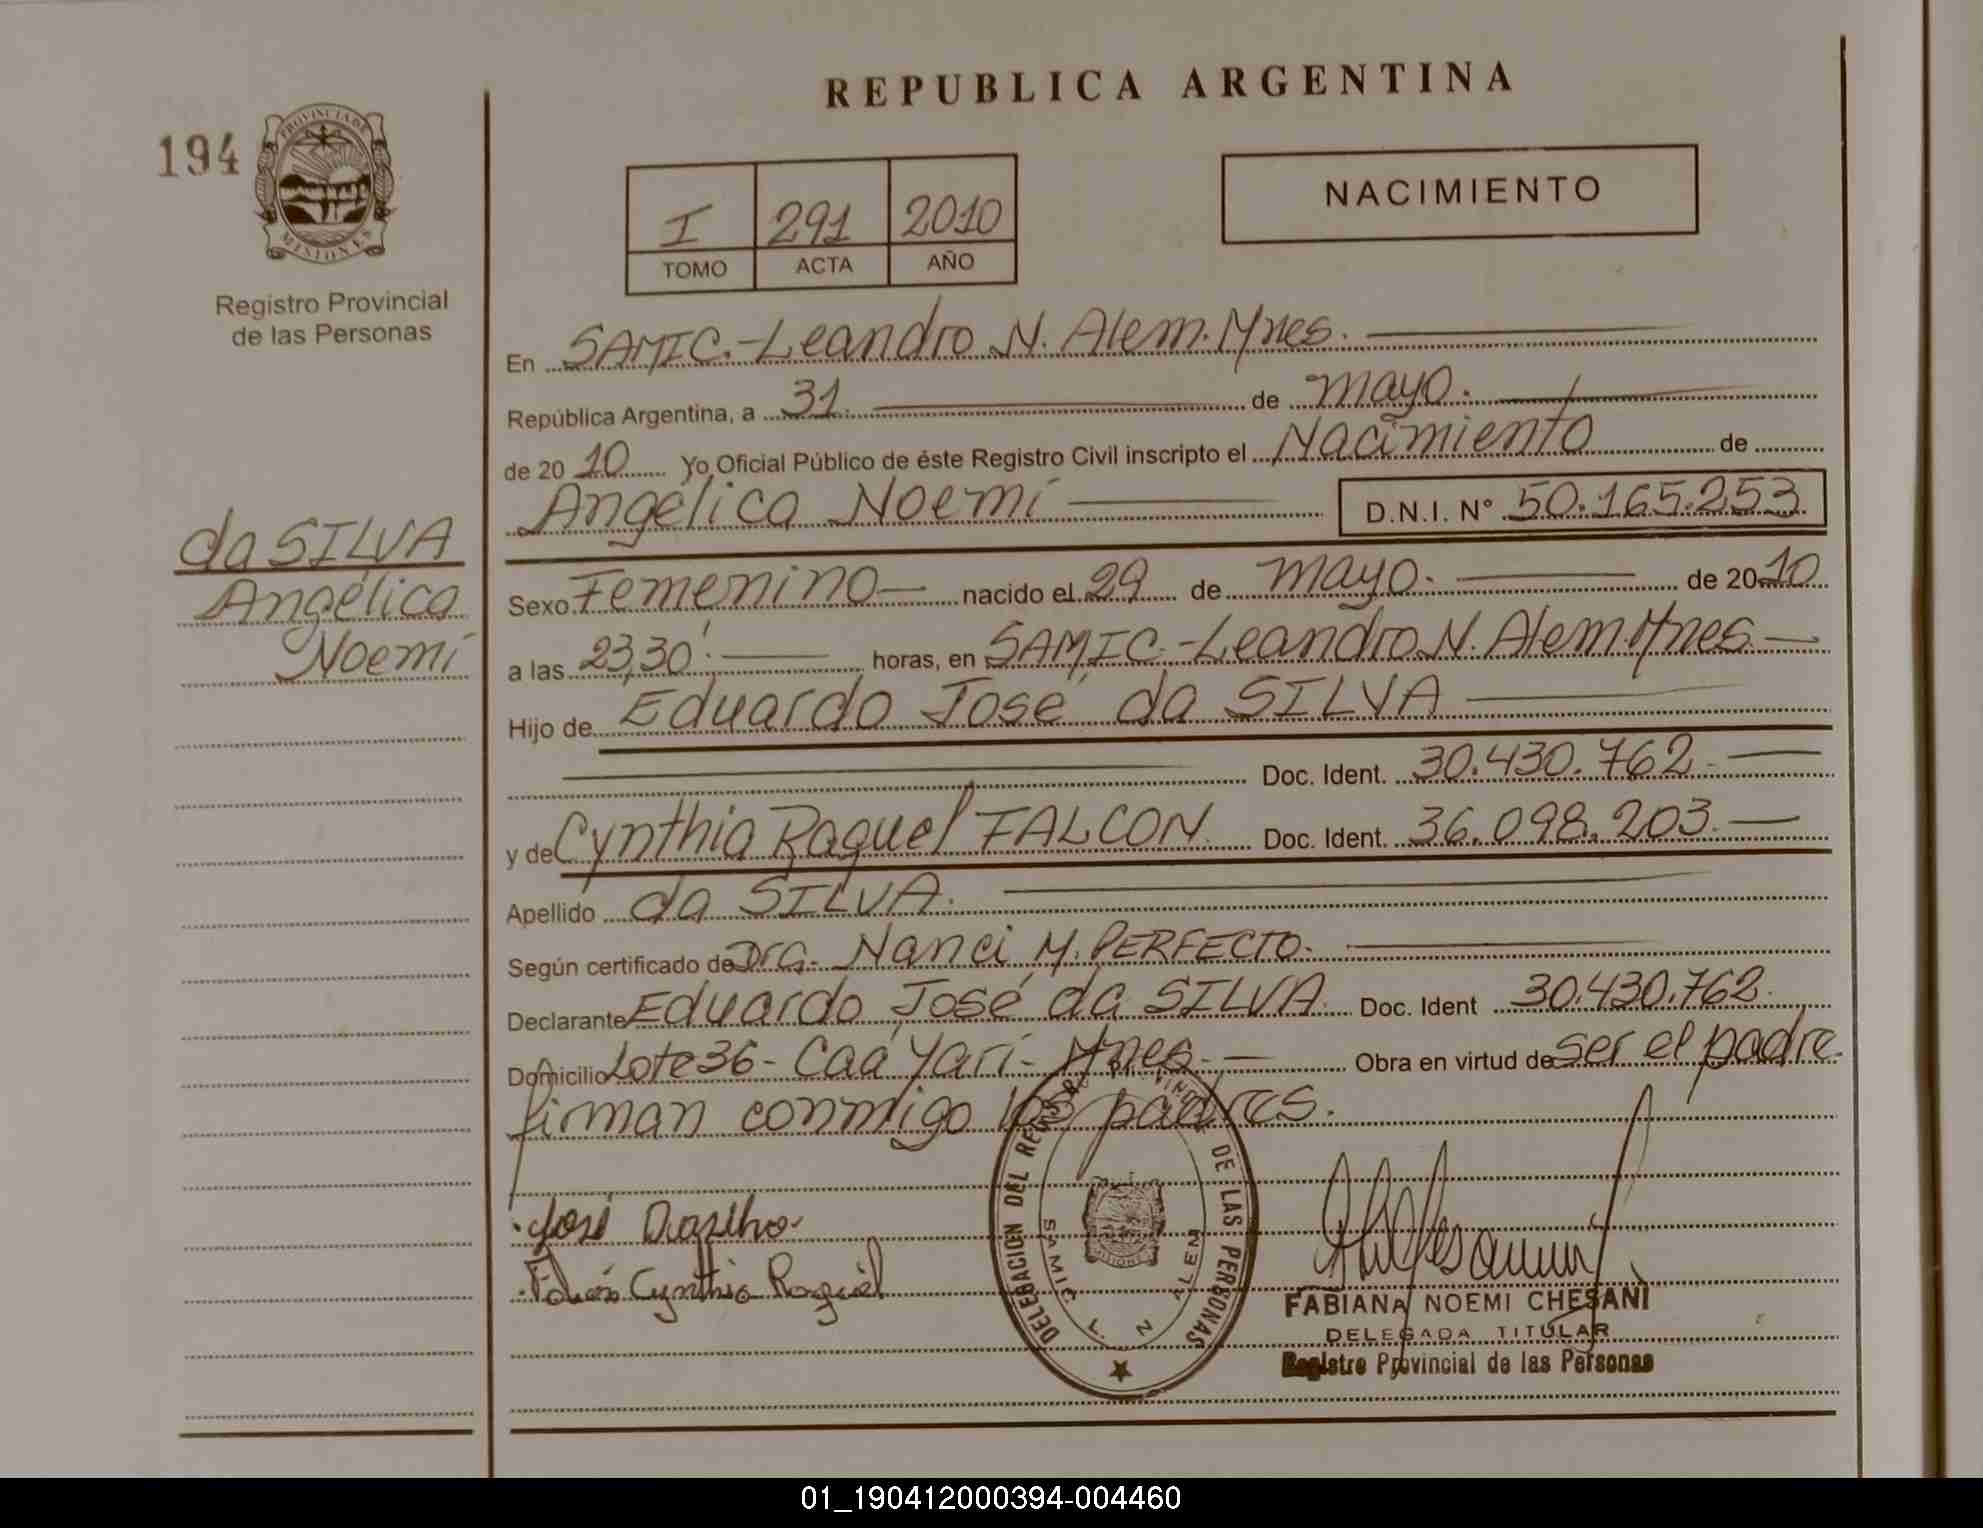 REPUBLICA ARGENTINA
194
PROVINCIA DE
MISIONES
Registro Provincial
de las Personas
I 291 2010
TOMO ACTA AÑO
NACIMIENTO
En SAMIC.-Leandro N. Alem. Mnes.
República Argentina, a 31 de mayo.
de 20 10 Yo Oficial Público de éste Registro Civil inscripto el Nacimiento de
Angélica Noemí D.N.I. Nº 50.165.253
da SILVA
Angélica
Noemí
Sexo Femenino nacido el 29 de mayo. de 20 10
a las 23,30' horas, en SAMIC.-Leandro N. Alem. Mnes
Hijo de Eduardo José da SILVA
Doc. Ident. 30.430.762
y de Cynthia Raquel FALCON. Doc. Ident. 36.098.203.
Apellido da SILVA.
Según certificado de Dra. Nanci M. PERFECTO.
Declarante Eduardo José da SILVA. Doc. Ident 30.430.762.
Domicilio Lote 36 - Caá Yarí - Mnes. Obra en virtud de ser el padre.
firman conmigo los padres.
José
Cynthia Raquel
DELEGACION DEL DE LAS PERSONAS
SAMIC L. N. ALEM
FABIANA NOEMI CHESANI
DELEGADA TITULAR
Registro Provincial de las Personas
01_190412000394-004460